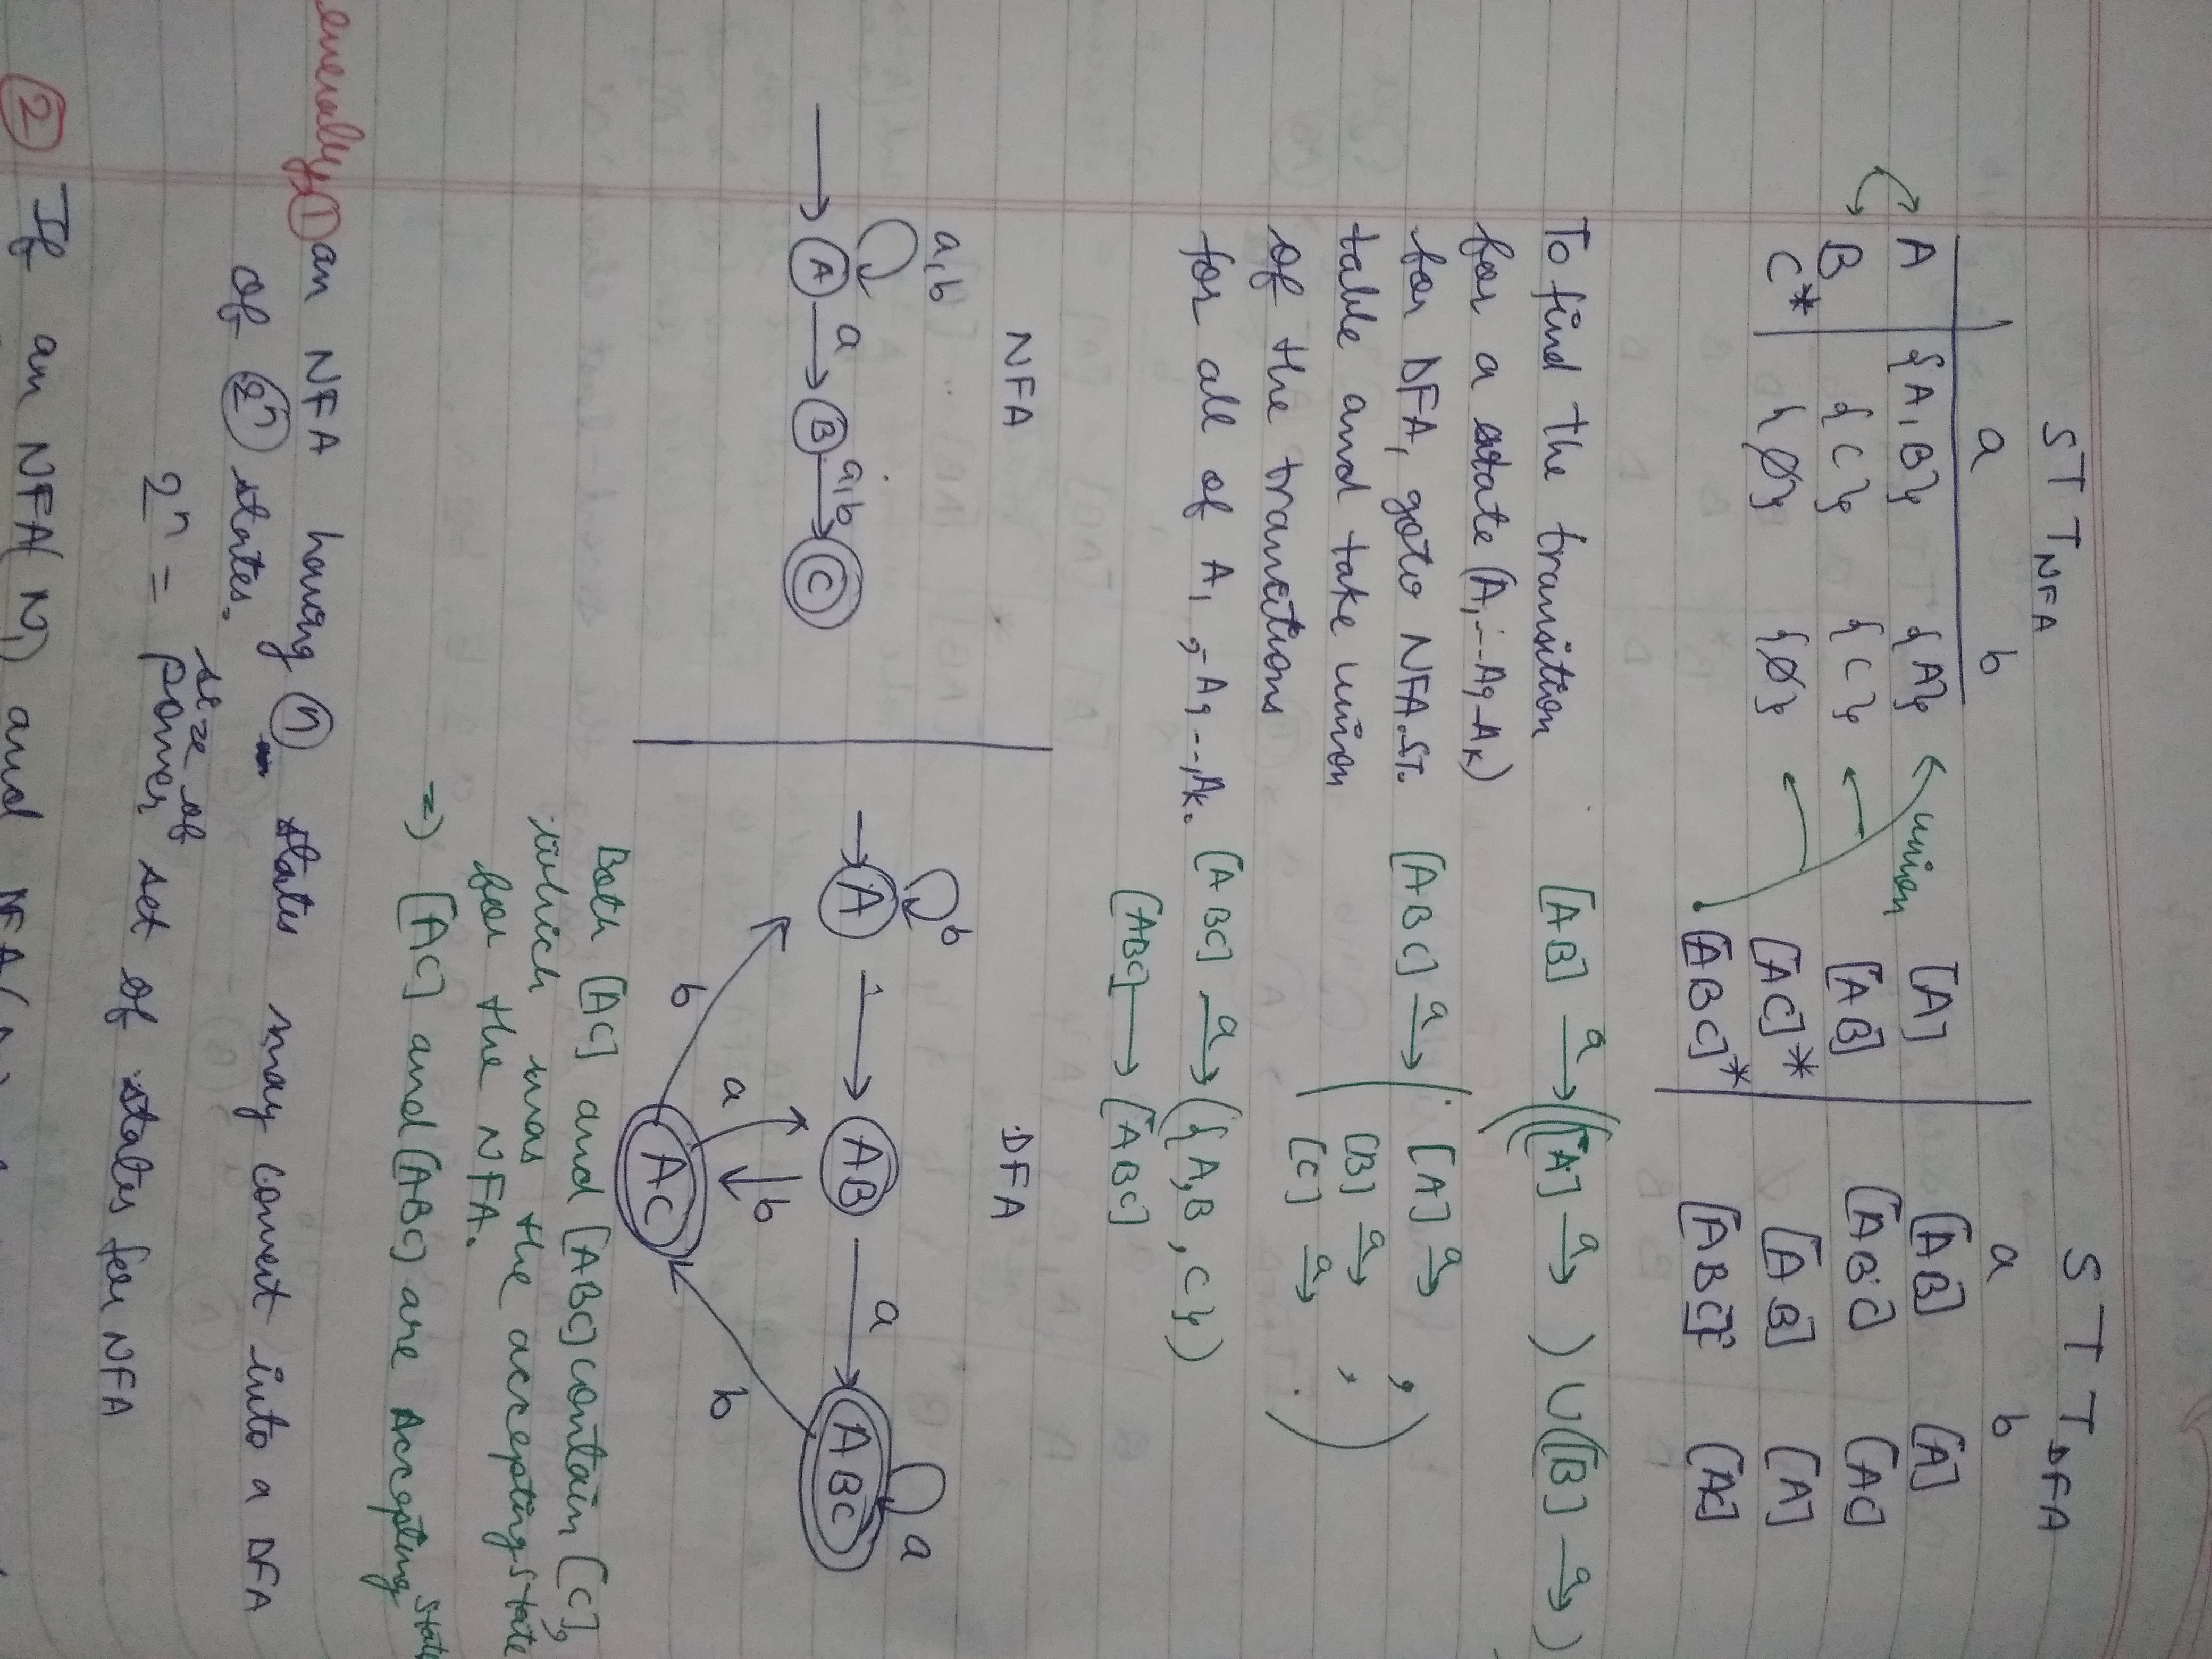 STT NFA
a b
A {A,B} {A}
B {C} {C}
C* {Ø} {Ø}
union
STT DFA
a b
[A] [AB] [A]
[AB] [ABC] [AC]
[AC]* [AB] [A]
[ABC]* [ABC] [AC]
To find the transition
for a state (A1--Aq-Ak)
for DFA, goto NFA.ST.
table and take union
of the transitions
for all of A1,-Aq--,Ak.
[AB] a→ ([A] a→ ) ∪ ([B] a→ )
[ABC] a→ ( [A] a→ ,
[B] a→ ,
[C] a→ . )
[ABC] a→ ({A,B,C})
[ABC] → [ABC]
NFA
a,b
A a B a,b C
DFA
b a
A AB a ABC
b a b b
AC
Both [AC] and [ABC] contain [C],
which was the accepting state
for the NFA.
=) [AC] and [ABC] are Accepting State
enerally ① an NFA having ⓝ states may convert into a DFA
of 2ⁿ states.
size of
2ⁿ = power set of states for NFA
② If an NFA( N1) and NFA(